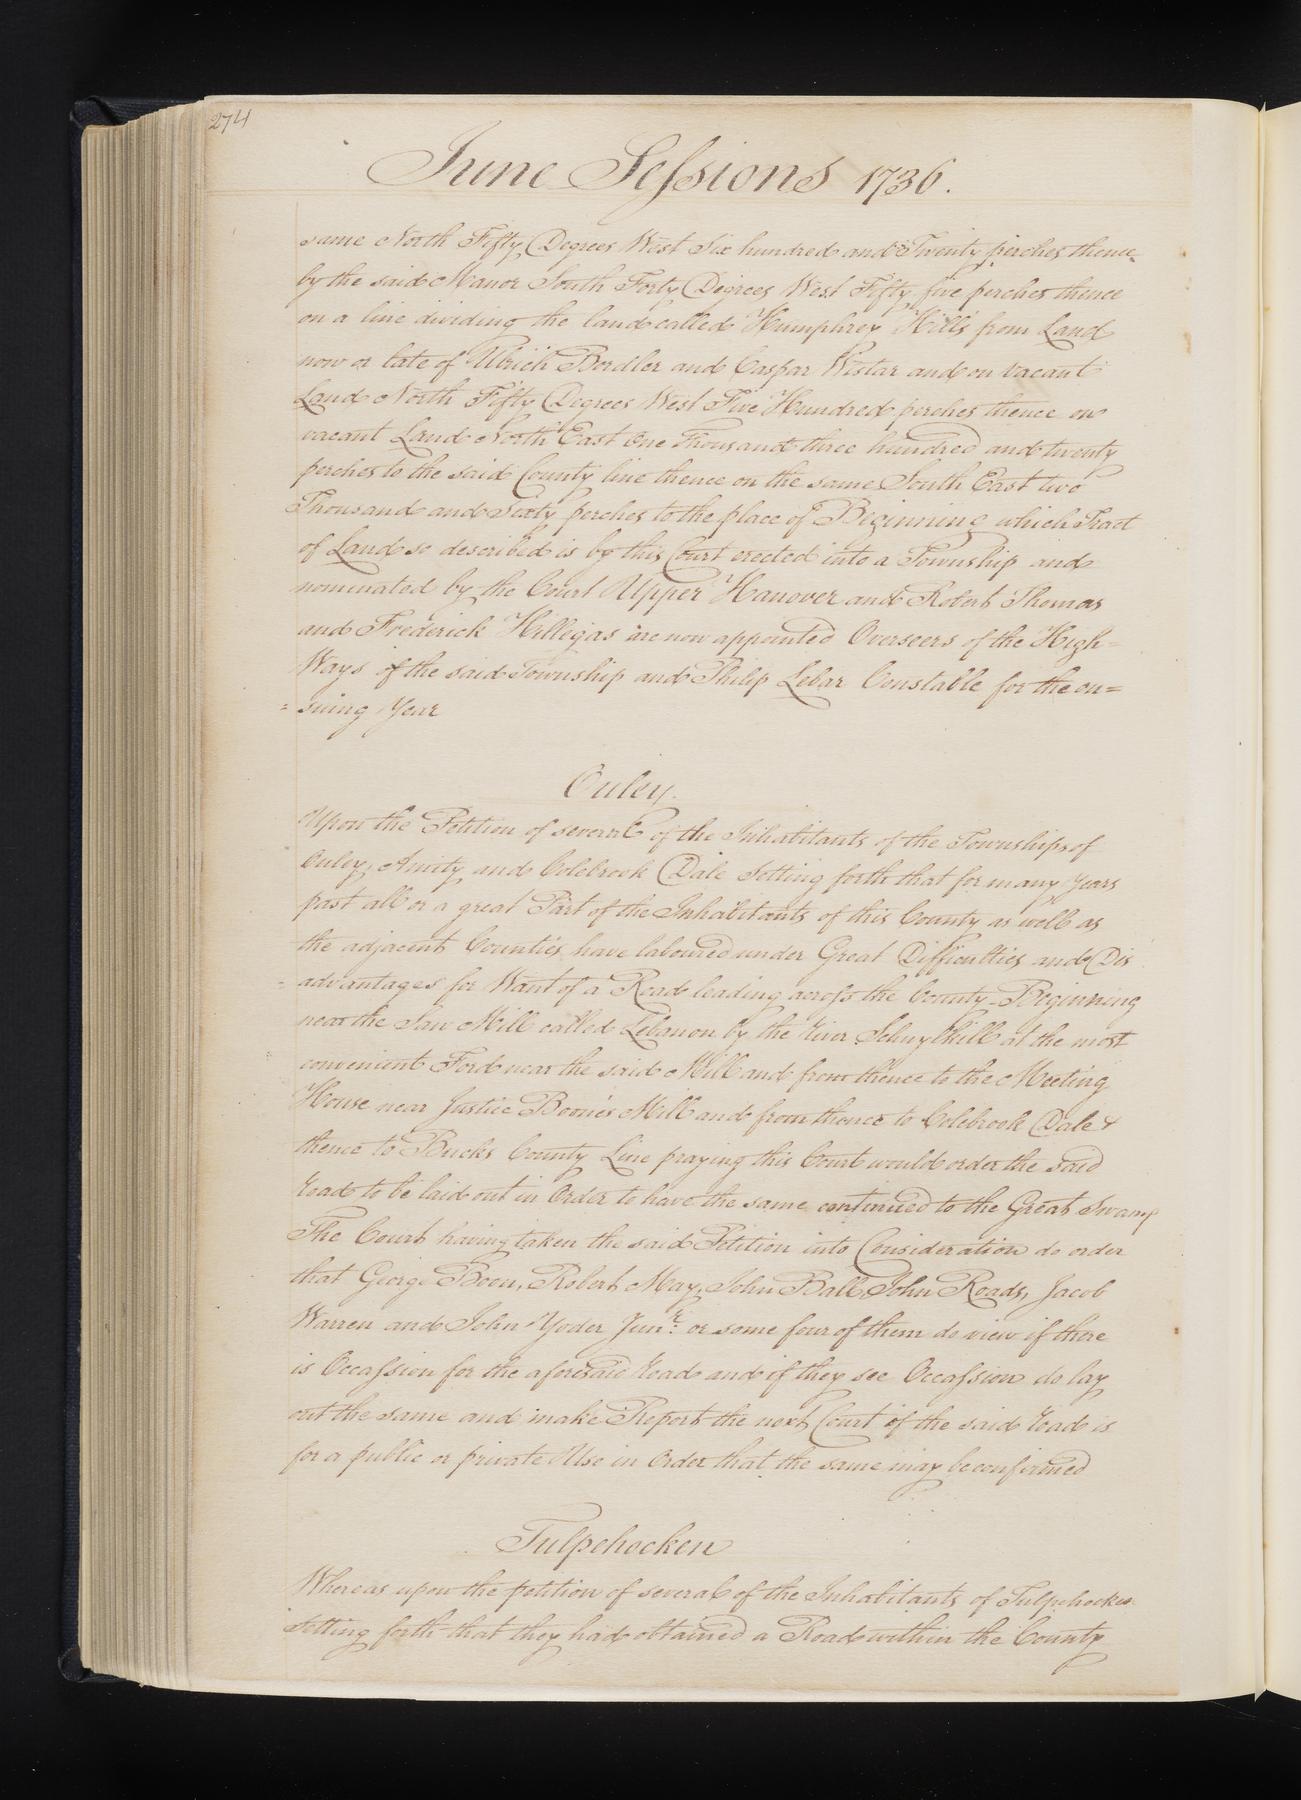 274
June Sessions 1736.
same North Fifty Degrees West Six hundred and Twenty perches thence
by the said Manor South Forty Degrees West Fifty five perches thence
on a line dividing the land called Humphrey Hills from Land
now or late of Ulrich Bordler and Caspar Wistar and on vacant
Land North Fifty Degrees West Five Hundred perches thence on
vacant Land North East One Thousand three hundred and twenty
perches to the said County line thence on the same South East two
Thousand and Sixty perches to the place of Beginning which Tract
of Land so described is by this Court erected into a Township and
nominated by the Court Upper Hanover and Robert Thomas
and Frederick Hillegas are now appointed Overseers of the High=
Ways of the said Township and Philip Lebar Constable for the en=
=suing Year
Ouley.
Upon the Petition of several of the Inhabitants of the Townships of
Ouley, Amity and Colebrook Dale Setting forth that for many Years
past all or a great Part of the Inhabitants of this County as well as
the adjacent Counties have laboured under Great Difficulties and Dis
=advantages for Want of a Road leading across the County Beginning
near the Saw Mill called Lebanon by the River Schuylkill at the most
convenient Ford near the said Mill and from thence to the Meeting
House near Justice Boone's Mill and from thence to Colebrook Dale &
thence to Bucks County Line praying this Court would order the said
Road to be laid out in Order to have the same continued to the Great Swamp
The Court having taken the said Petition into Consideration do order
that George Boon, Robert May, John Ball, John Roads, Jacob
Warren and John Yoder Junr. or some four of them do view if there
is Occassion for the aforesaid Road and if they see Occassion do lay
out the same and make Report the next Court if the said Road is
for a public or private Use in Order that the same may be confirmed
Tulpehocken
Whereas upon the petition of several of the Inhabitants of Tulpehocken
Setting forth that they had obtained a Road within the County